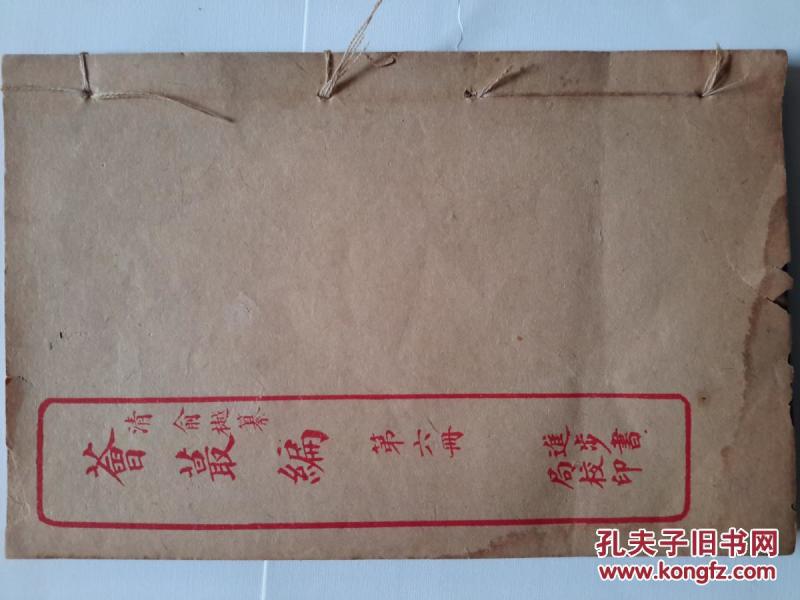 薈蕞編
清 俞樾纂
第六冊
進步書
局校印
孔夫子旧书网
www.kongfz.com